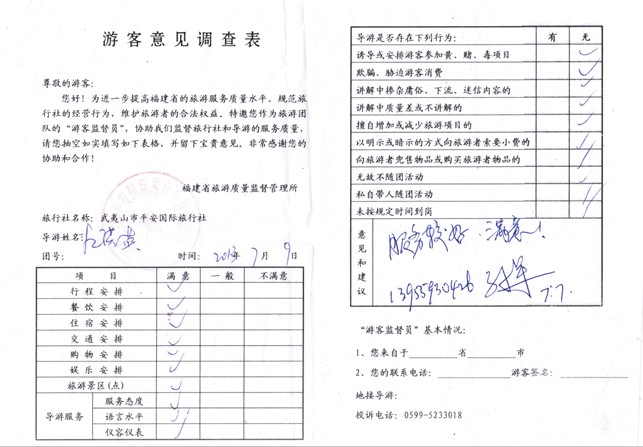 游客意见调查表
尊敬的游客:
您好!为进一步提高福建省的旅游服务质量水平,规范旅
行社的经营行为、维护旅游者的合法权益。特邀您作为旅游
团队的“游客监督员”,协助我们监督旅行社和导游的服务质量,
请您抽空如实填写如下表格,并留下宝贵意见。非常感谢您的
协助和合作!
福建省旅游质量监督管理所
旅行社名称: 武夷山市平安国际旅行社
导游姓名:
团号: 时间: 年 7 月 9 日
项 目 满 意 一 般 不满意
行 程 安 排 ✓
餐 饮 安 排 ✓
住 宿 安 排 ✓
交 通 安 排 ✓
购 物 安 排 ✓
娱 乐 安 排 ✓
旅游景区(点) ✓
导游服务
服务态度 ✓
语言水平 ✓
仪容仪表 ✓
导游是否存在下列行为: 有 无
诱导或安排游客参加黄、赌、毒项目 ✓
欺骗、胁迫游客消费 ✓
讲解中掺杂庸俗、下流、迷信内容的 ✓
讲解中质量差或不讲解的 ✓
擅自增加或减少旅游项目的 ✓
以明示或暗示的方式向旅游者索要小费的 ✓
向旅游者兜售物品或购买旅游者物品的 ✓
无故不随团活动 ✓
私自带人随团活动 ✓
未按规定时间到岗 ✓
意见和建议
服务较好 满意!
13955930426
7.7.
“游客监督员”基本情况:
1、您来自于________省______市
2、您的联系电话:__________游客签名:__________
地接导游:
投诉电话: 0599-5233018